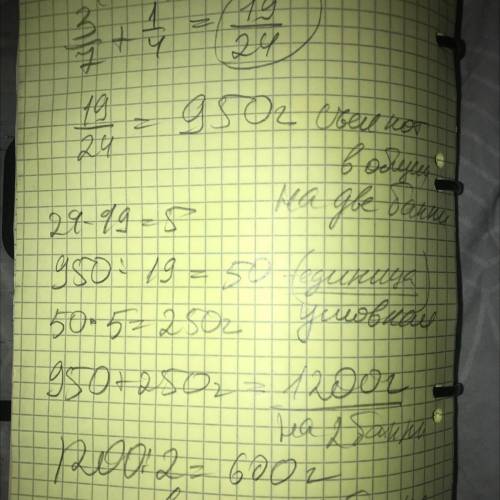 3/7 + 1/4 = 19/24
19/24 = 950г съел кот
в общем
на две банки
24-19=5
950 : 19 = 50 (единица)
условная
50·5=250г
950+250г = 1200г
на 2 банки
1200:2 = 600г